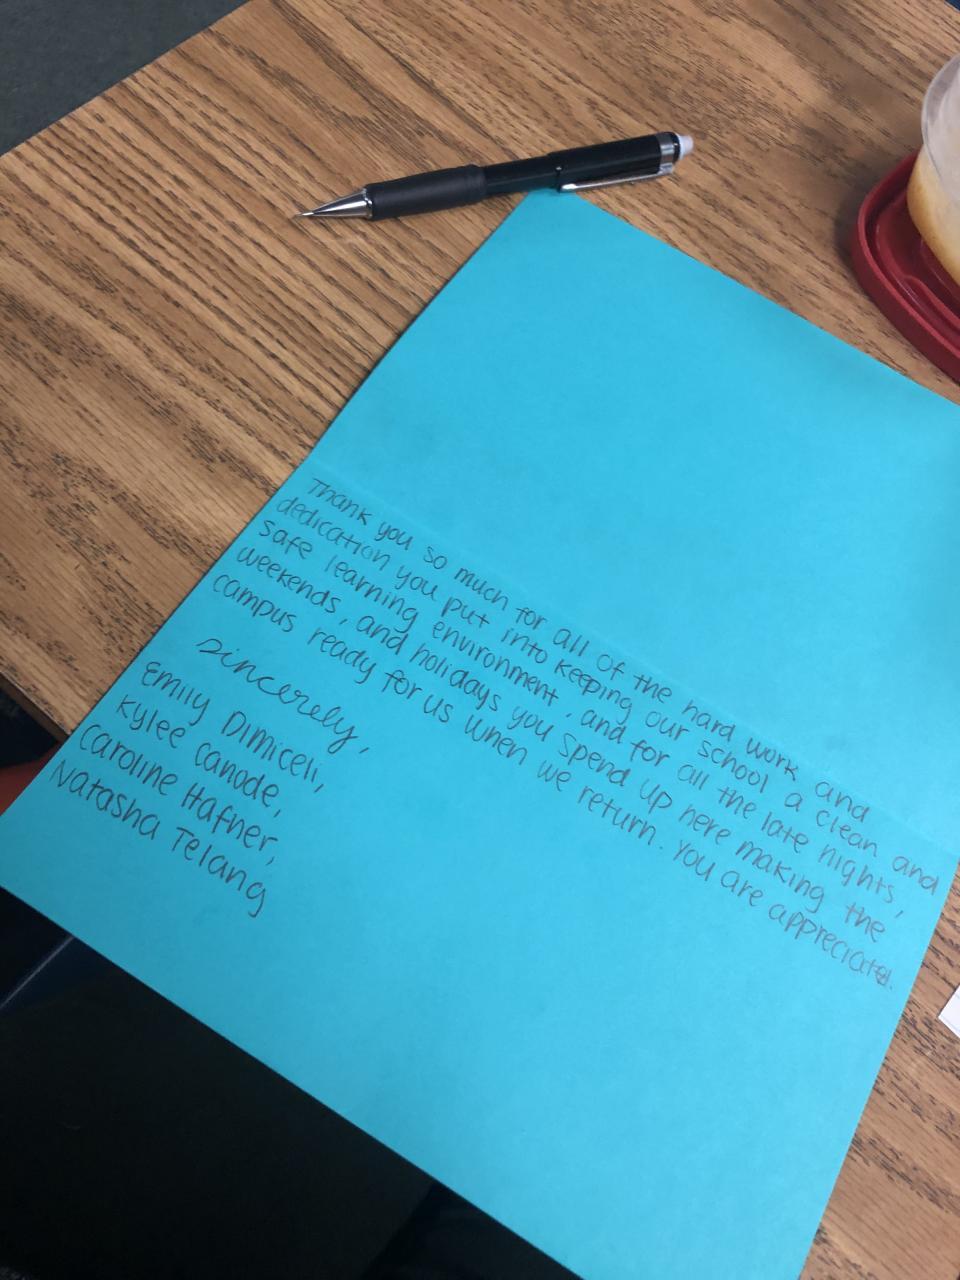 Thank you so much for all of the hard work and
dedication you put into keeping our school a clean and
safe learning environment, and for all the late nights,
weekends, and holidays you spend up here making the
campus ready for us when we return. You are appreciated.
Sincerely,
Emily Dimiceli,
Kylee Canode,
Caroline Hafner,
Natasha Telang